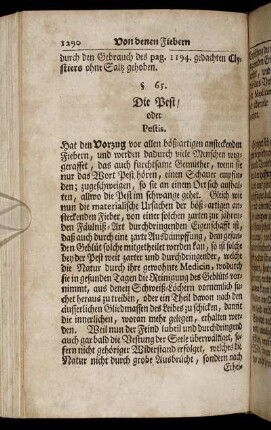 1290 Von denen Fiebern
durch den Gebrauch des pag. 1194. gedachten Cly-
stiers ohne Saltz gehoben.
§ 65.
Die Pest/
oder
Pestis.
Hat den Vorzug vor allen böß-artigen ansteckenden
Fiebern, und werden dadurch viele Menschen weg-
geraffet, das auch furchtsame Gemüther, wenn sie
nur das Wort Pest hören, einen Schauer empfin-
den; zugeschweigen, so sie an einem Ort sich aufhal-
ten, allwo die Pest im schwange gehet. Gleich wie
nun die materialische Ursachen der böß-artigen an-
steckenden Fieber, von einer solchen zarten zur jähren-
den Fäulniß-Art durchdringenden Eigenschafft ist,
daß auch durch eine zarte Ausdämpffung, dem gesun-
den Geblüt solche mitgetheilet werden kan, so ist solche
bey der Pest weit zarter und durchdringender, welche
die Natur durch ihre gewohnte Medicin, wodurch
sie in gesunden Tagen die Reinigung des Geblüts vor-
nimmt, aus denen Schweiß-Löchern vornemlich su-
chet heraus zu treiben, oder ein Theil davon nach den
äusserlichen Gliedmassen des Leibes zu schicken, damit
die innerlichen, woran mehr gelegen, erhalten wer-
den. Weil nun der Feind subtil und durchdringend
auch gar bald die Vestung der Seele überwältiget, so-
fern nicht gehöriger Widerstand erfolget, welches die
Natur nicht durch grobe Ausbrücht, sondern nach